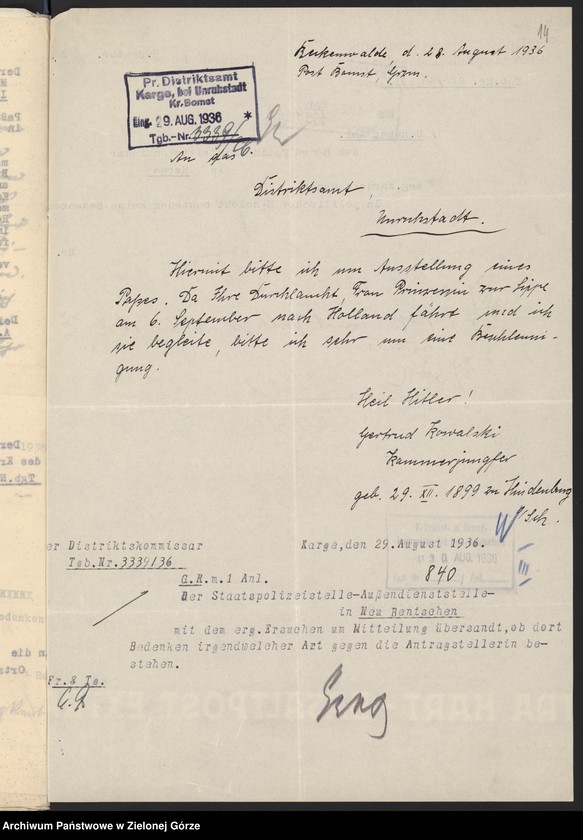 14
Reckenwalde, d. 28. August 1936
Post Bomst, Grzm.
Pr. Distriktsamt
Karge, bei Unruhstadt
Kr. Bomst
Eing. 29. AUG. 1936 *
Tgb.-Nr. 3339/36.
An das
Distriktsamt
Unruhstadt.
Hiermit bitte ich um Ausstellung eines
Passes. Da Ihre Durchlaucht, Frau Prinzessin zur Lippe
am 6. September nach Holland fährt und ich
sie begleite, bitte ich sehr um eine Beschleuni-
gung.
Heil Hitler!
Gertrud Kowalski
Kammerjungfer
geb. 29. XII. 1899 zu Hindenburg
O/Sch.
er Distriktskommissar
Karge,den 29.August 1936.
Tgb.Nr.3339/36
30. AUG. 1936
840
III
G.R.m.1 Anl.
der Staatspolizeistelle-Außendienststelle-
in Neu Bentschen
mit dem erg.Ersuchen um Mitteilung übersandt,ob dort
Bedenken irgendwelcher Art gegen die Antragstellerin be-
stehen.
Fr.8 Tg.
Archiwum Państwowe w Zielonej Górze